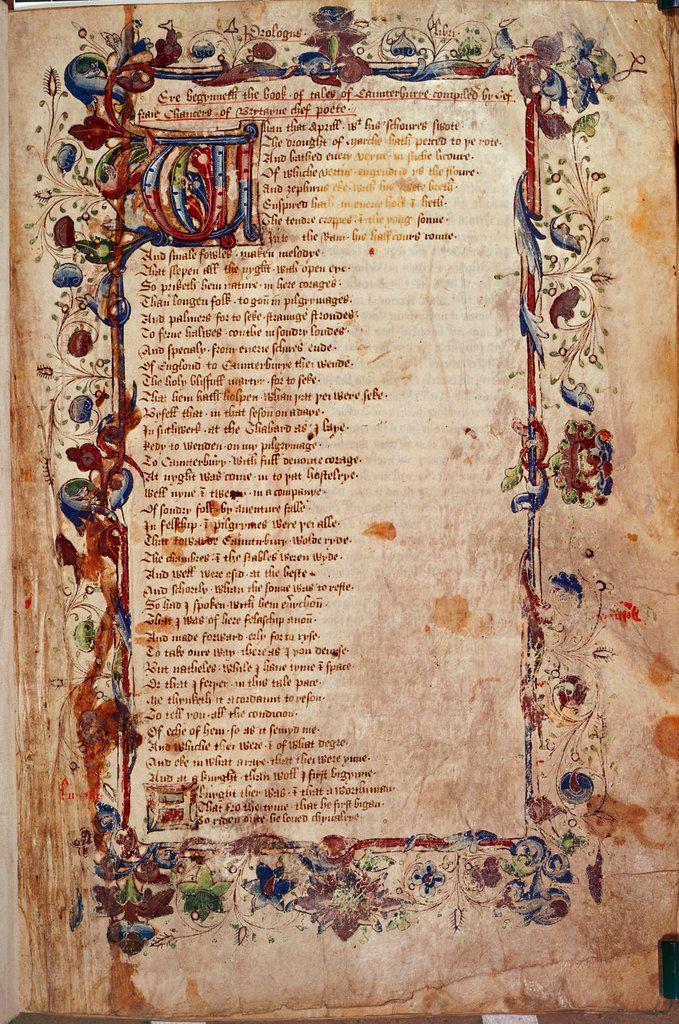 Prologus libri
Ere begynneth the book of tales of Caunterburye compiled by Gef
fraie Chaucers of Brytayne chef poete
Whan that Aprill wt his schoures swote
The drought of marche hath perced to þe rote
And bathed euery veyne in suche licoure
Of whiche vertue engendrid ys the floure
And zephirus eke with his swete breth
Enspired hath in euerie holt & heth
The tendre croppes & the yong sonne
Into the Ram his half cours ronne
And smale fowles maken melodye
That slepen all the nyght with open eye
So priketh hem nature in here corages
Than longen folk to gon in pilgrymages
And palmers for to seke straunge strondes
To ferne halwes couthe in sondry londes
And specialy from euerie schires ende
Of Englond to Caunterburye thei wende
The holy blisfull martyr for to seke
That hem hath holpen whan þat þei were seke
Byfell that in that seson on a daye
In suthwerk at the Thabard as I laye
Redy to wenden on my pilgrymage
To Caunterbury with full deuoute corage
At nyght was come in to þat hostelrye
Well nyne & twenty in a companye
Of sondry folk by auenture falle
In felschip & pilgrymes were þei alle
That towarde Caunterbury wolde ryde
The chambres & the stables weren wyde
And well were esid at the beste
And schortly whan the sonne was to reste
So had I spoken with hem
That I was of here felaschip anon
And made forward erly for to ryse
To take oure way there as I you deuyse
But natheles while I haue tyme & space
Or that I ferþer in this tale pace
Me thynketh it acordaunt to reson
To tell you all the condicion
Of eche of hem so as it semyd me
And whiche thei were & of what degre
And eke in what araye that thei were ynne
And at a knyght than woll I first bigynne
A knyght ther was & that a worthi man
That fro the tyme that he first bigan
To riden oute he loued chyualrye